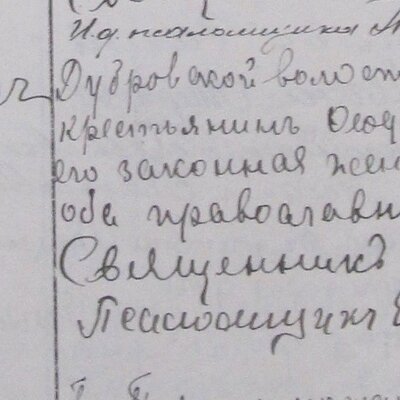 И.д. псаломщика
Дубровской волост
крестьянинъ Ософ
его законная жен
оба православн
Священникъ
Псаломщикъ